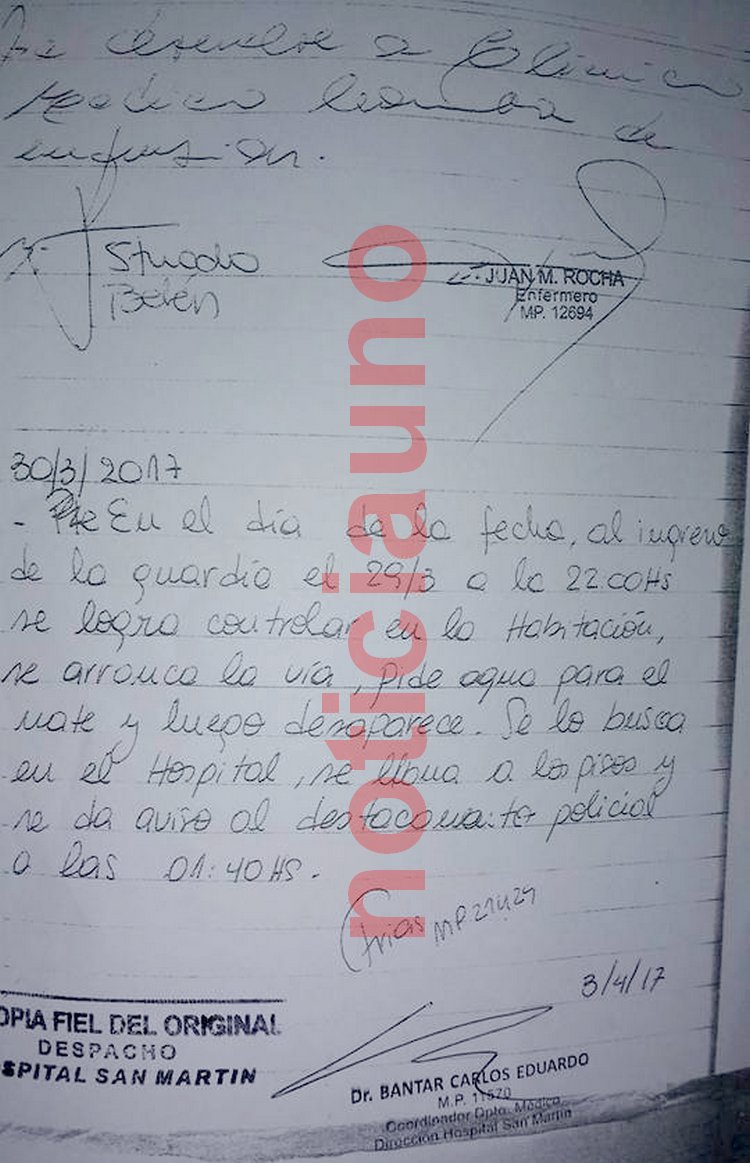 Se devuelve a Clínica
Médica bomba de
infusión.
Studolo
Belén
JUAN M. ROCHA
Enfermero
MP. 12694
30/3/2017
- En el día de la fecha, al ingreso
de la guardia el 29/3 a la 22 00Hs
se logra controlar en la Habitación,
se arranca la vía, pide agua para el
mate y luego desaparece. Se lo busca
en el Hospital, se llama a los pisos y
se da aviso al destacamento policial
a las 01:40HS.
Frias MP.21429
3/4/17
OPIA FIEL DEL ORIGINAL
DESPACHO
SPITAL SAN MARTIN
Dr. BANTAR CARLOS EDUARDO
M.P. 11570
Coordinador Dpto. Médico
Dirección Hospital San Martín
noticiauno